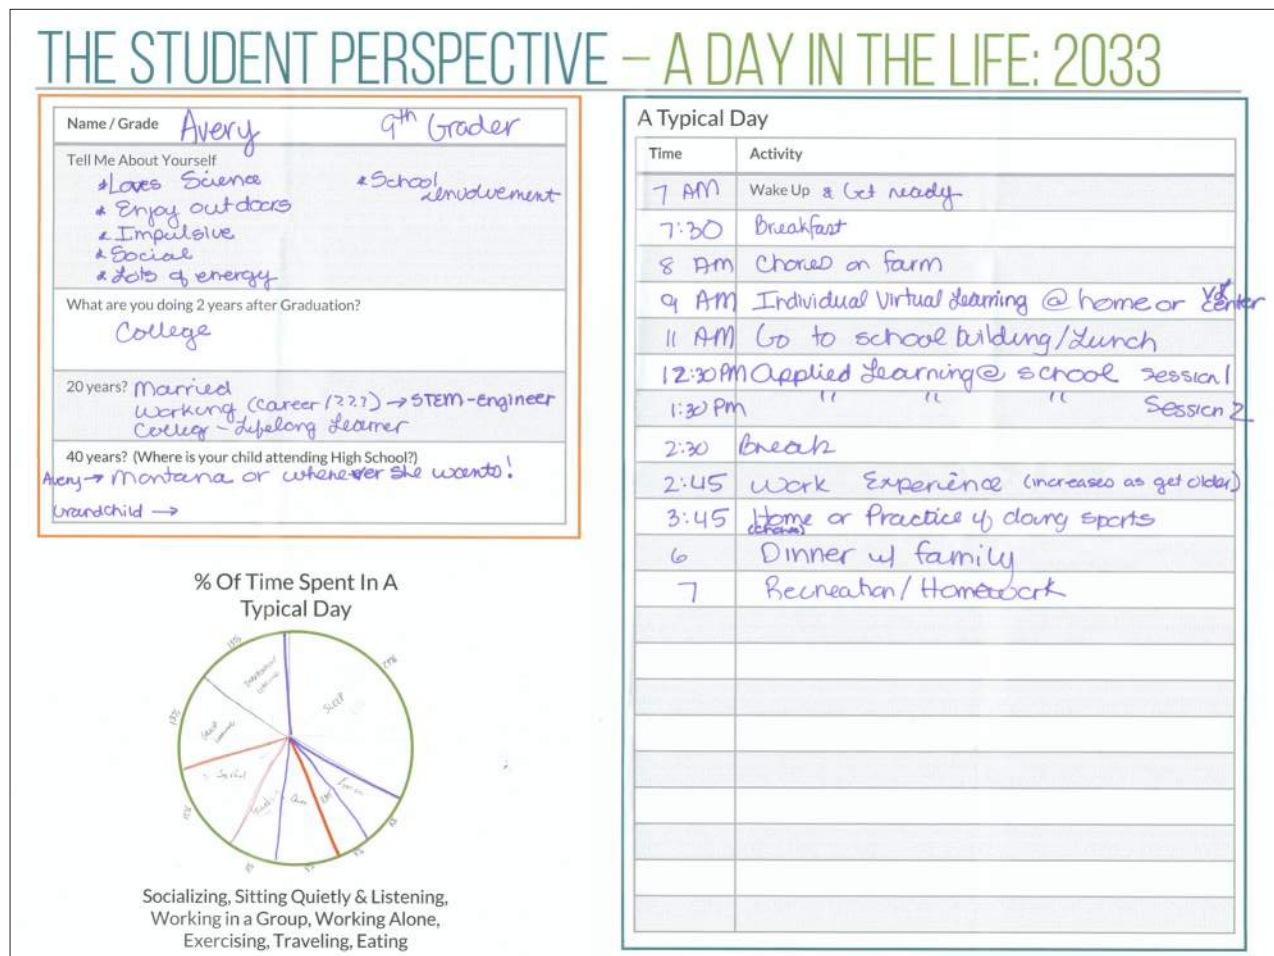 THE STUDENT PERSPECTIVE – A DAY IN THE LIFE: 2033
Name / Grade Avery 9th Grader
Tell Me About Yourself
* Loves Science * School
involvement
* Enjoy outdoors
* Impulsive
* Social
* Lots of energy
What are you doing 2 years after Graduation?
College
20 years? Married
Working (career /???) → STEM-engineer
College - Lifelong Learner
40 years? (Where is your child attending High School?)
Avery → Montana or wherever she wants!
Grandchild →
% Of Time Spent In A
Typical Day
SLEEP
Social
Socializing, Sitting Quietly & Listening,
Working in a Group, Working Alone,
Exercising, Traveling, Eating
A Typical Day
Time Activity
7 AM Wake Up & Get ready
7:30 Breakfast
8 AM Chores on farm
9 AM Individual Virtual Learning @ home or center
11 AM Go to school building/Lunch
12:30 PM Applied Learning @ school session 1
1:30 PM " " " Session 2
2:30 Break
2:45 Work Experience (increases as get older)
3:45 Home or Practice if doing sports
(chores)
6 Dinner w/ family
7 Recreation / Homework